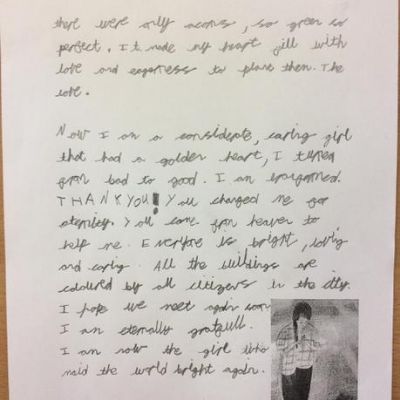 there were only acorns, so green so
perfect. It made my heart fill with
love and eagerness to plant them. The
love.
Now I am a considerate, caring girl
that had a golden heart, I turned
from bad to good. I am transformed.
THANKYOU! You changed me for
eternity. Y all came from heaven to
help me. Everyone is bright, loving
and caring. All the buildings are
coloured by all citizens in the city.
I hope we meet again soon
I am eternally gratefull.
I am now the girl who
maid the world bright again.